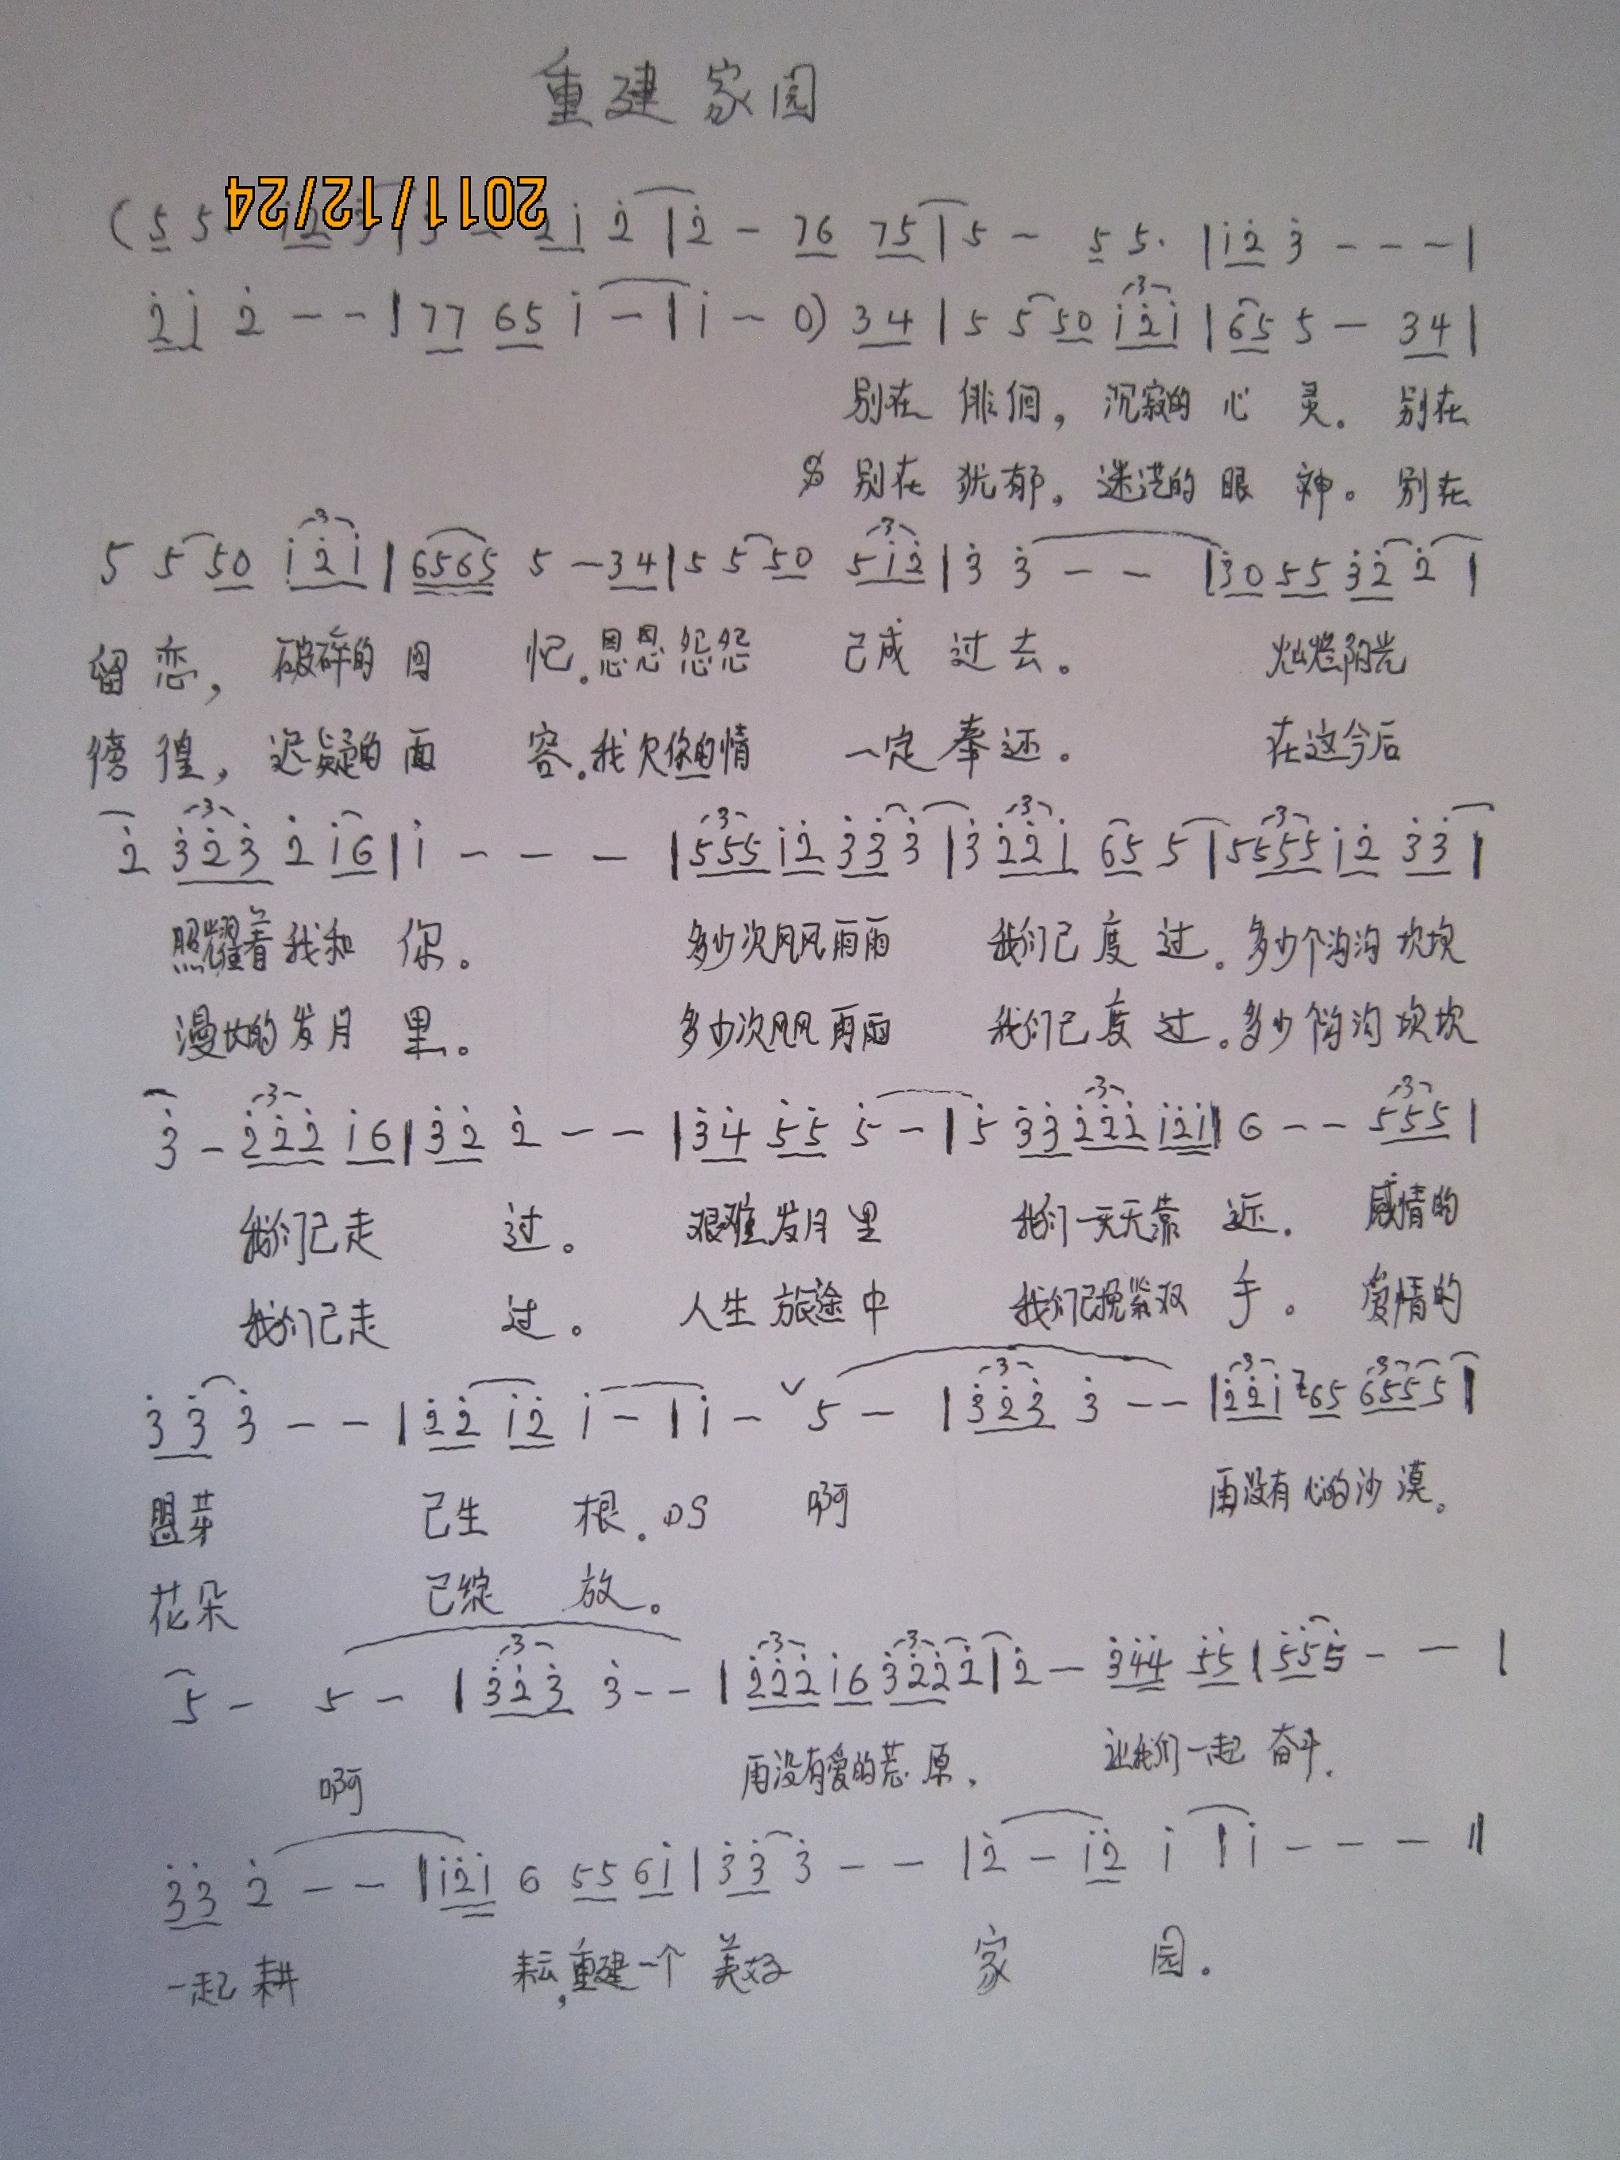 重建家园
2011/12/24
(5 5· i̇ 2̇ 3̇ | 3̇ - 2̇ i̇ 2̇ | 2̇ - 76 75 | 5 - 5 5· | i̇ 2̇ 3̇ - - - |
2̇ i̇ 2̇ - - | 77 65 i̇ - | i̇ - 0) 34 | 5 5 50 i̇ 2̇ i̇ | 65 5 - 34 |
别在 徘徊，沉寂的 心 灵。别在
别在 犹郁，迷茫的 眼 神。别在
5 5 50 i̇ 2̇ i̇ | 6565 5 - 34 | 5 5 50 5 i̇ 2̇ | 3̇ 3̇ - - | 3̇0 55 3̇2̇ 2̇ |
留 恋，破碎的 回 忆.恩恩怨怨 已成 过 去。 灿烂阳光
徬 徨，迟疑的 面 容.我欠你的情 一定 奉 还。 在这今后
2̇ 3̇2̇3̇ 2̇ i̇6 | i̇ - - - | 555 i̇2̇ 3̇3̇ 3̇ | 3̇ 2̇2̇i̇ 65 5 | 5555 i̇2̇ 3̇3̇ |
照耀着我和 你。 多少次风风雨雨 我们已 度 过.多少个沟沟坎坎
漫长的岁月 里。 多少次风风雨雨 我们已度 过.多少个沟沟坎坎
3̇ - 2̇2̇2̇ i̇6 | 3̇2̇ 2̇ - - | 3̇4̇ 5̇5̇ 5̇ - | 5̇ 3̇3̇ 2̇2̇2̇ i̇2̇i̇ | 6 - - 555 |
我们已走 过。 艰难岁月里 我们一天天靠 近. 感情的
我们已走 过. 人生旅途中 我们已挽紧双 手。 爱情的
3̇ 3̇ 3̇ - - | 2̇2̇ i̇2̇ i̇ - | i̇ - ˅ 5 - | 3̇2̇3̇ 3̇ - - | 2̇2̇i̇ 65 655 5 |
盟芽 已生 根. DS 啊 再没有心的沙漠。
花朵 已绽 放。
5 - 5 - | 3̇2̇3̇ 3̇ - - | 2̇2̇2̇ i̇6 3̇2̇2̇ 2̇ | 2̇ - 3̇4̇4̇ 5̇5̇ | 5̇5̇5̇ - - |
啊 再没有爱的荒原， 让我们一起 奋斗.
3̇3̇ 2̇ - - | i̇2̇i̇ 6 55 6i̇ | 3̇3̇ 3̇ - - | 2̇ - i̇2̇ i̇ | i̇ - - - ‖
一起 耕 耘，重建一个 美好 家 园。